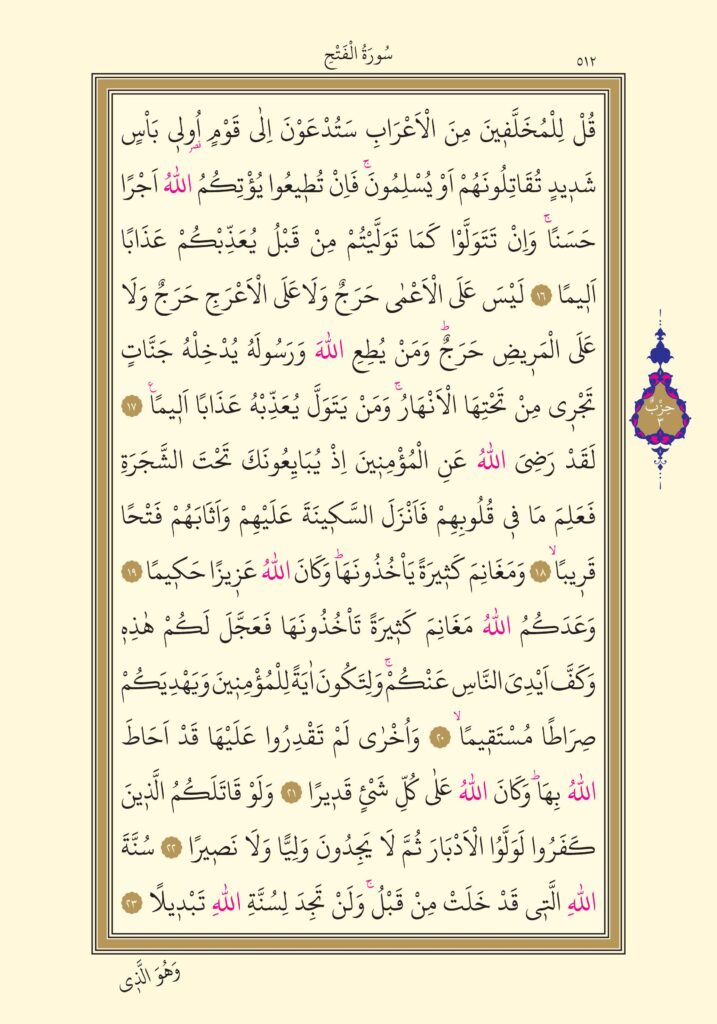 ٥١٢
سُورَةُ الْفَتْحِ
قُلْ لِلْمُخَلَّف۪ينَ مِنَ الْاَعْرَابِ سَتُدْعَوْنَ اِلٰى قَوْمٍ اُو۬ل۪ي بَاْسٍ
قصر
شَد۪يدٍ تُقَاتِلُونَهُمْ اَوْ يُسْلِمُونَۚ فَاِنْ تُط۪يعُوا يُؤْتِكُمُ اللّٰهُ اَجْرًا
حَسَنًاۚ وَاِنْ تَتَوَلَّوْا كَمَا تَوَلَّيْتُمْ مِنْ قَبْلُ يُعَذِّبْكُمْ عَذَابًا
اَل۪يمًا ﴿١٦﴾ لَيْسَ عَلَى الْاَعْمٰى حَرَجٌ وَلَا عَلَى الْاَعْرَجِ حَرَجٌ وَلَا
عَلَى الْمَر۪يضِ حَرَجٌۜ وَمَنْ يُطِعِ اللّٰهَ وَرَسُولَهُ يُدْخِلْهُ جَنَّاتٍ
تَجْر۪ي مِنْ تَحْتِهَا الْاَنْهَارُۚ وَمَنْ يَتَوَلَّ يُعَذِّبْهُ عَذَابًا اَل۪يمًاۚ ﴿١٧﴾
لَقَدْ رَضِيَ اللّٰهُ عَنِ الْمُؤْمِن۪ينَ اِذْ يُبَايِعُونَكَ تَحْتَ الشَّجَرَةِ
فَعَلِمَ مَا ف۪ي قُلُوبِهِمْ فَاَنْزَلَ السَّك۪ينَةَ عَلَيْهِمْ وَاَثَابَهُمْ فَتْحًا
قَر۪يبًاۙ ﴿١٨﴾ وَمَغَانِمَ كَث۪يرَةً يَاْخُذُونَهَاۜ وَكَانَ اللّٰهُ عَز۪يزًا حَك۪يمًا ﴿١٩﴾
وَعَدَكُمُ اللّٰهُ مَغَانِمَ كَث۪يرَةً تَاْخُذُونَهَا فَعَجَّلَ لَكُمْ هٰذِه۪
وَكَفَّ اَيْدِيَ النَّاسِ عَنْكُمْۚ وَلِتَكُونَ اٰيَةً لِلْمُؤْمِن۪ينَ وَيَهْدِيَكُمْ
صِرَاطًا مُسْتَق۪يمًاۙ ﴿٢٠﴾ وَاُخْرٰى لَمْ تَقْدِرُوا عَلَيْهَا قَدْ اَحَاطَ
اللّٰهُ بِهَاۜ وَكَانَ اللّٰهُ عَلٰى كُلِّ شَيْءٍ قَد۪يرًا ﴿٢١﴾ وَلَوْ قَاتَلَكُمُ الَّذ۪ينَ
كَفَرُوا لَوَلَّوُا الْاَدْبَارَ ثُمَّ لَا يَجِدُونَ وَلِيًّا وَلَا نَص۪يرًا ﴿٢٢﴾ سُنَّةَ
اللّٰهِ الَّت۪ي قَدْ خَلَتْ مِنْ قَبْلُۚ وَلَنْ تَجِدَ لِسُنَّةِ اللّٰهِ تَبْد۪يلًا ﴿٢٣﴾
حِزْبٌ
٣
وَهُوَ الَّذ۪ي